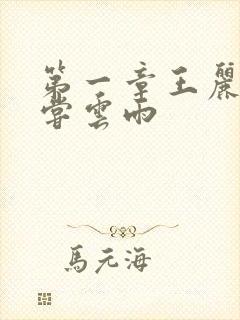 第一章王麗
嘗雲雨
馬元海